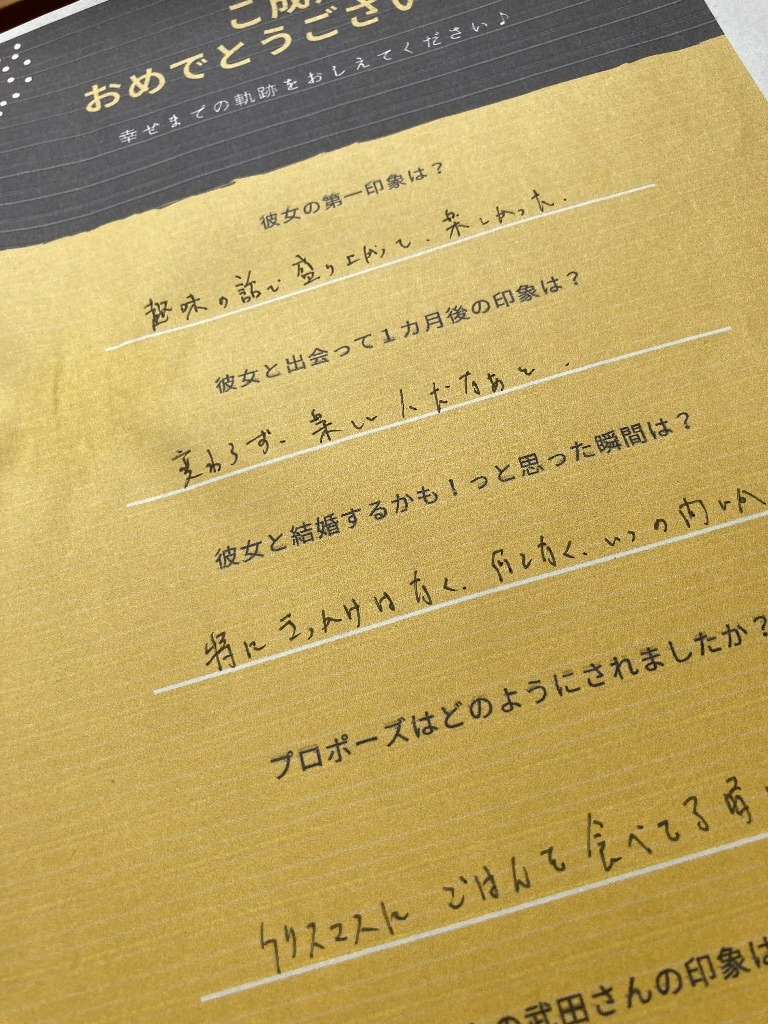 ご成
おめでとうござい
幸せまでの軌跡をおしえてください♪
彼女の第一印象は？
趣味の話で盛り上がって、楽しかった.
彼女と出会って１カ月後の印象は？
変わらず、楽しい人だなあと.
彼女と結婚するかも！っと思った瞬間は？
特にきっかけはなく、何となく、いつの内にか
プロポーズはどのようにされましたか？
クリスマスに ごはんを食べてる時
の武田さんの印象は